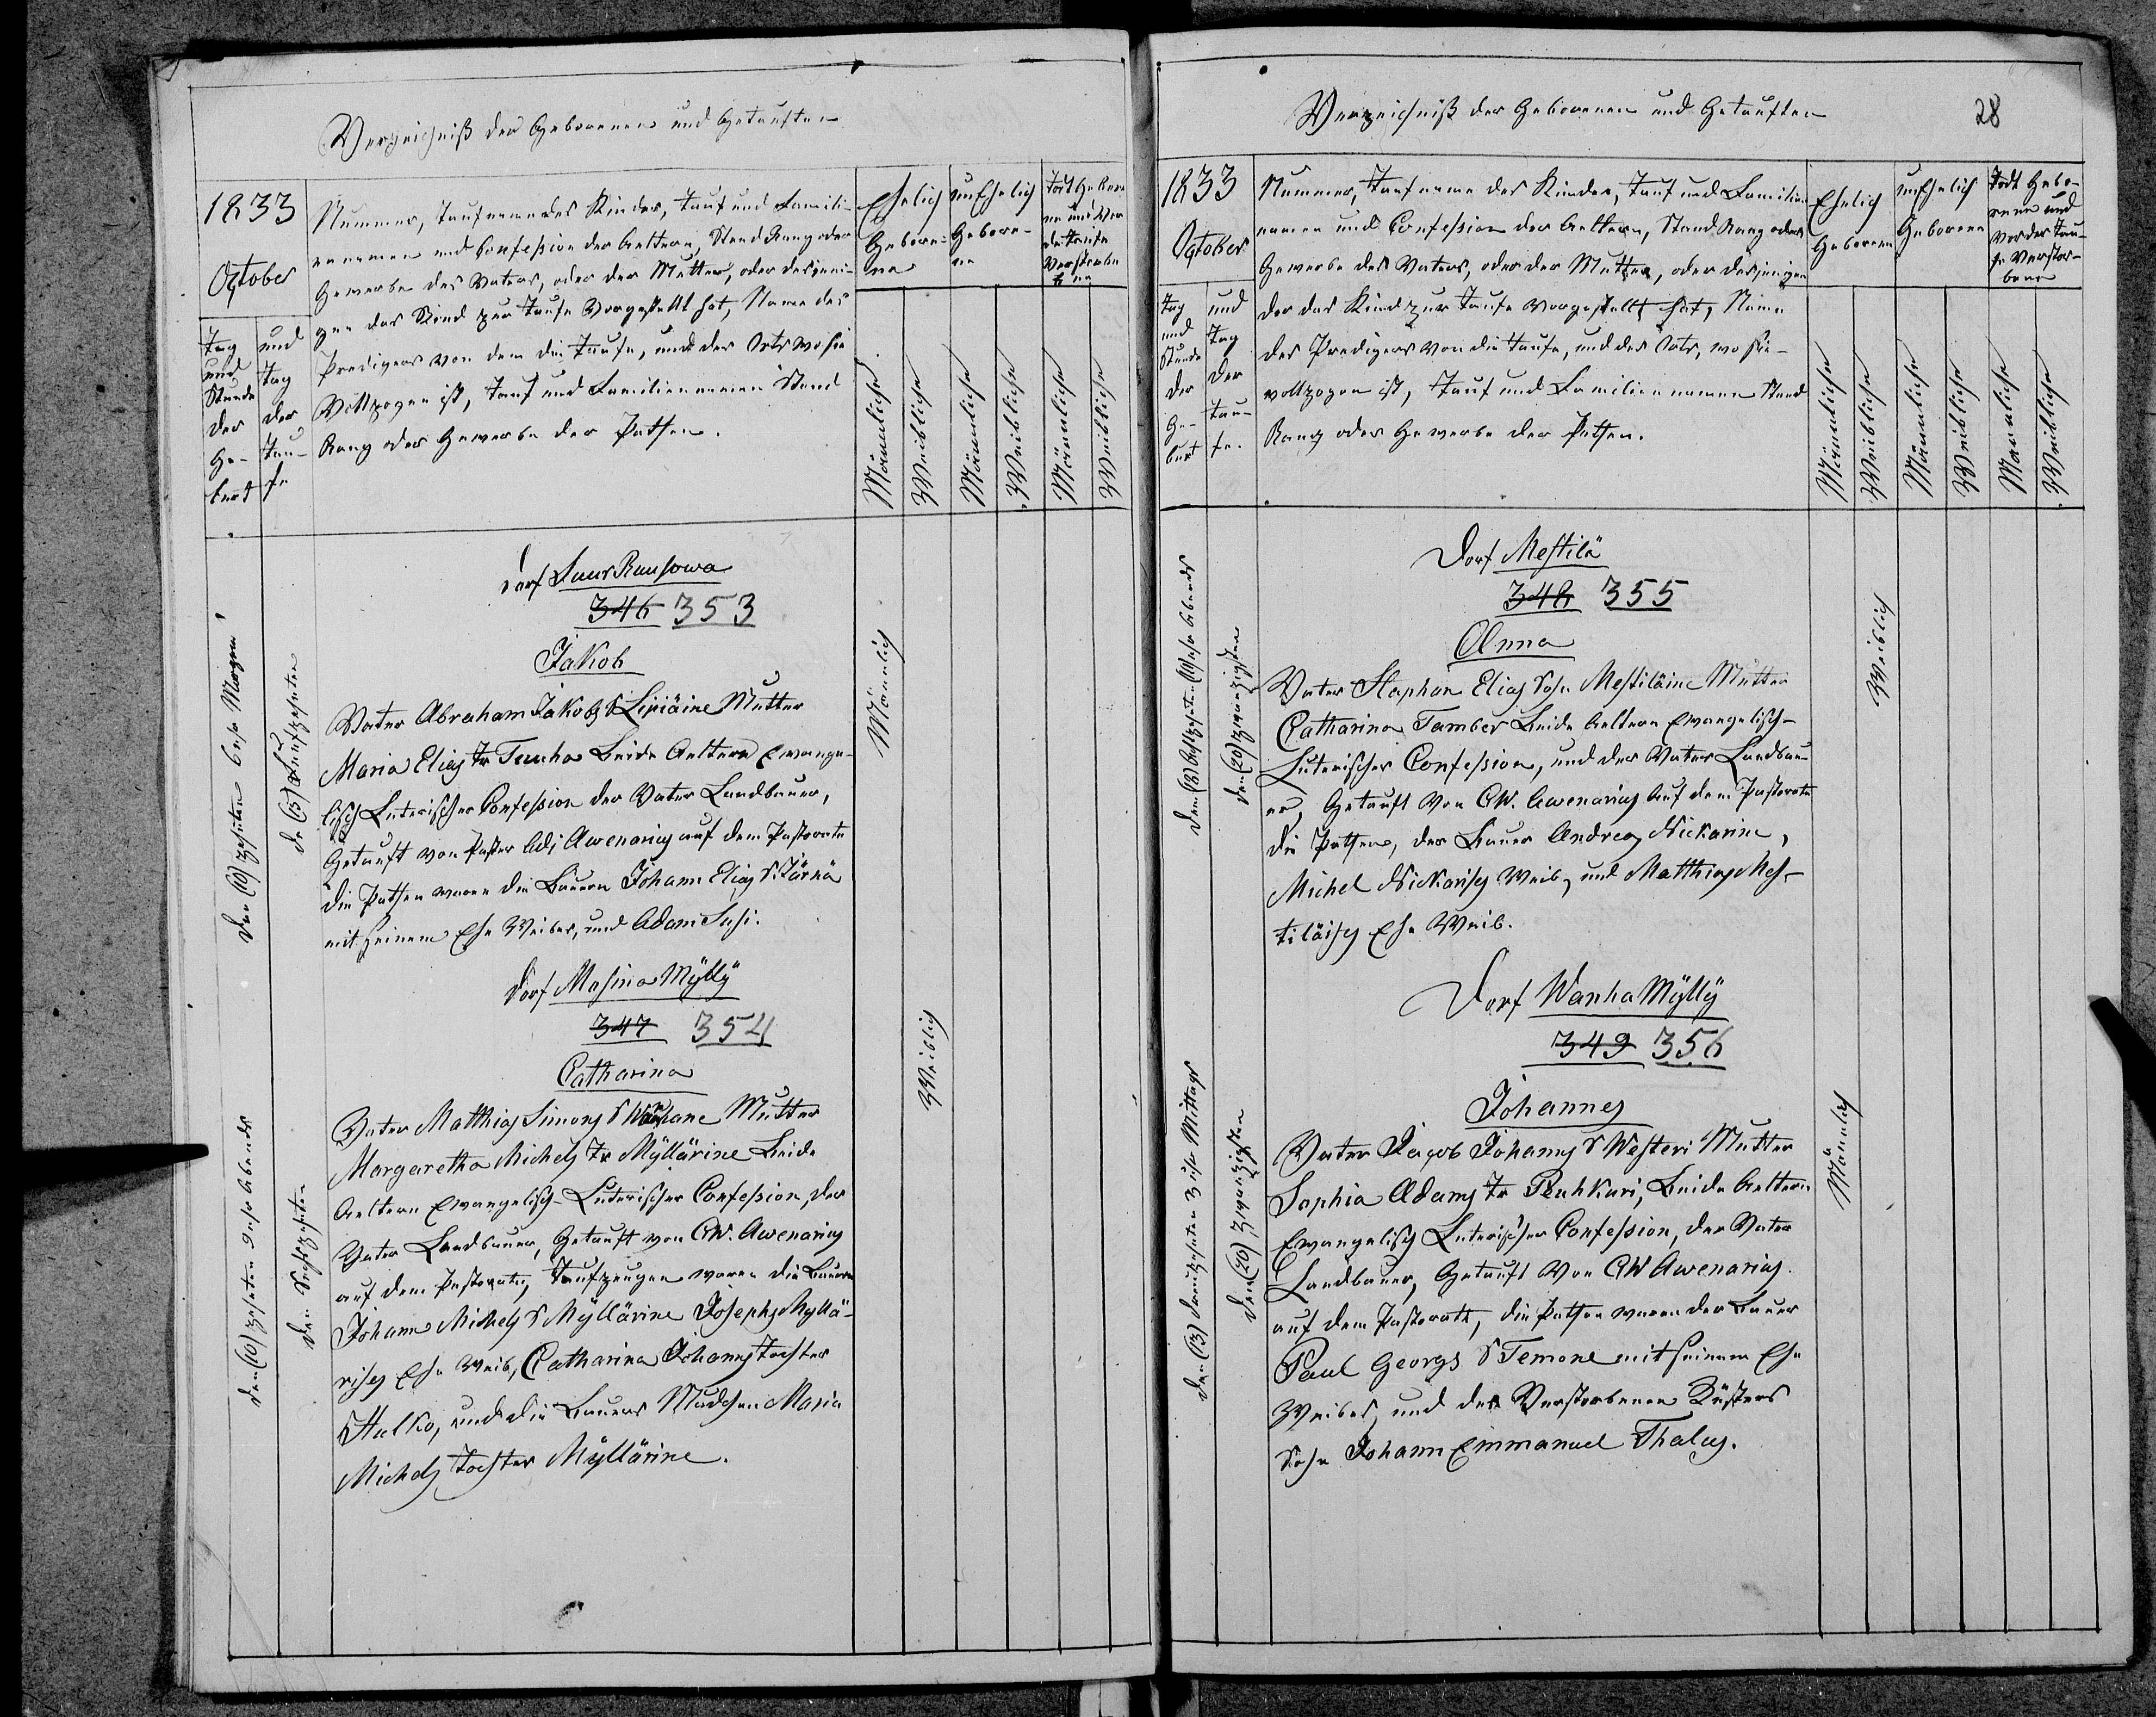 Verzeichniß der Geborenen und Getauften
1833
October
Tag und Stunde der Geburt
und Tag der Taufe
Nummer, Taufname des Kindes, Tauf und Famili-
ennamen und Confession der Aeltern, Stand Rang oder
Gewerbe des Vaters, oder der Mutter, oder desjeni-
gen das Kind zur Taufe Vorgestellt hat, Name des
Predigers von dem die Taufe, und der Orts wo sie
Vollzogen ist, Tauf und Familiennamen Stand
Rang oder Gewerbe der Pathen.
Ehelich Geborene
unEhelich Geborene
Todt Geborene und Vor der Taufe Verstorbene
Männliche
Weibliche
Männliche
Weibliche
Männliche
Weibliche
den (10) zehnten 6 uhr Morgens
den (15) Funfzehnten
Dorf Suur Runsowa
346 353
Jakob
Vater Abraham Jakobs S Lipiäine Mutter
Maria Elias Tr Teuha Beide Aeltern Evange-
lisch Luterischer Confession der Vater Landbauer,
Getauft von Pastor Adj Awenarius auf dem Pastorate
die Pathen waren die Bauern Johann Elias S. Järnä
mit seinem Ehe Weibes, und Adam Susi.
Männlich
den (10) zehnten 9 uhr Abends
den Sechszehnten
Dorf Masina Mÿllÿ
347 354
Catharina
Vater Matthias Simons S Wanhane Mutter
Margaretha Michels Tr Mÿllärine Beide
Aeltern Evangelisch-Luterischer Confession, der
Vater Landbauer, Getauft von CW. Awenarius
auf dem Pastorate, Taufzeugen waren die Bauern
Johann Michels S Mÿllärine Josephs Myllä-
rises Ehe Weib, Catharina Johanns Tochter
Hulko, und die Bauers Mädchen Maria
Michels Tochter Mÿllärine.
Weiblich
Verzeichniß der Geborenen und Getauften
28
1833
October
Tag und Stunde der Geburt
und Tag der Taufe.
Nummer, Taufname des Kindes, Tauf und Familien
namen und Confession der Aeltern, Stand Rang oder
Gewerbe des Vaters, oder der Mutter, oder desjenigen
der das Kind zur Taufe vorgestellt hat, Name
des Predigers von die Taufe, und des Orts, wo sie
vollzogen ist, Tauf und Familiennamen Stand
Rang oder Gewerbe der Pathen.
Ehelich Geborene
unEhelich Geborene
Todt Geborene und Vor der Taufe Verstorbene
Männliche
Weibliche
Männliche
Weibliche
Männliche
Weibliche
den (18) Achtzehnten uhr Abends
den (20) zwanzigsten
Dorf Mestilä
348 355
Anna
Vater Staphan Elias Sohn Mestiläine Mutter
Catharina Tamber Beide Aeltern Evangelisch-
Luterischer Confession, und der Vater Landbau-
er, Getauft von CW. Awenarius auf dem Pastorate
die Pathen, der Bauer Andreas Nickarine,
Michel Nickarises Weib, und Matthias Mes-
tiläises Ehe Weib.
Weiblich
den (13) dreizehnten 3 uhr Mittags
den (20) zwanzigsten
Dorf Wanha Mÿllÿ
349 356
Johannes
Vater Jacob Johanns S Westeri Mutter
Sophia Adams Tr Penhkuri, Beide Aeltern
Evangelisch Luterischer Confession, der Vater
Landbauer, Getauft von CW Awenarius
auf dem Pastorate, die Pathen waren der Bauer
Paul Georgs S Temone mit seinem Ehe
Weibes, und des Verstorbenen Küsters
Sohn Johann Emmanuel Thalus.
Männlich